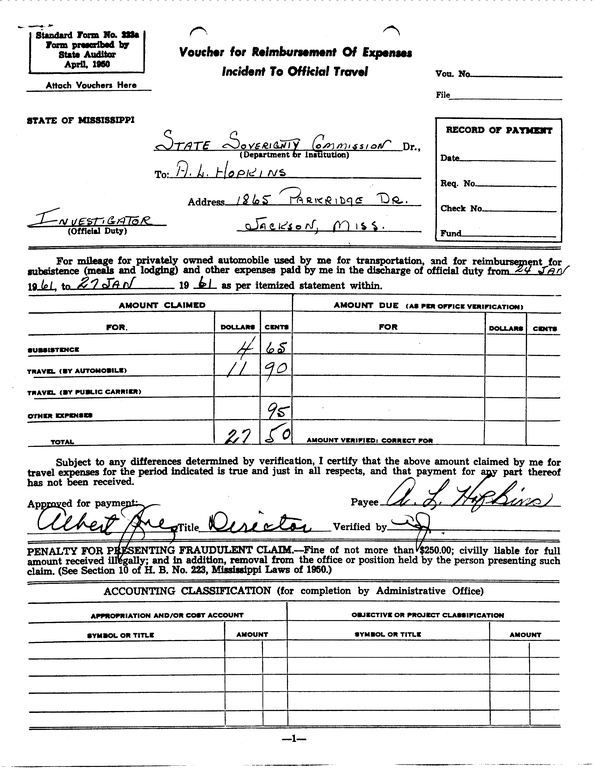 Standard Form No. 223a
Form prescribed by
State Auditor
April, 1950
Attach Vouchers Here
Voucher for Reimbursement Of Expenses
Incident To Official Travel
Vou. No.
File
STATE OF MISSISSIPPI
STATE SOVERIGNTY COMMISSION Dr.,
(Department or Institution)
To: A. L. HOPKINS
Address 1865 PARKRIDGE DR.
JACKSON, MISS.
INVESTIGATOR
(Official Duty)
RECORD OF PAYMENT
Date
Req. No.
Check No.
Fund
For mileage for privately owned automobile used by me for transportation, and for reimbursement for
subsistence (meals and lodging) and other expenses paid by me in the discharge of official duty from 24 JAN
1961, to 27 JAN 1961 as per itemized statement within.
AMOUNT CLAIMED AMOUNT DUE (AS PER OFFICE VERIFICATION)
FOR. DOLLARS CENTS FOR DOLLARS CENTS
SUBSISTENCE 65
TRAVEL (BY AUTOMOBILE) 11 90
TRAVEL (BY PUBLIC CARRIER)
OTHER EXPENSES 95
TOTAL 27 50 AMOUNT VERIFIED: CORRECT FOR
Subject to any differences determined by verification, I certify that the above amount claimed by me for
travel expenses for the period indicated is true and just in all respects, and that payment for any part thereof
has not been received.
Approved for payment: Payee A. L. Hopkins
Albert Title Director Verified by
PENALTY FOR PRESENTING FRAUDULENT CLAIM.—Fine of not more than $250.00; civilly liable for full
amount received illegally; and in addition, removal from the office or position held by the person presenting such
claim. (See Section 10 of H. B. No. 223, Mississippi Laws of 1950.)
ACCOUNTING CLASSIFICATION (for completion by Administrative Office)
APPROPRIATION AND/OR COST ACCOUNT OBJECTIVE OR PROJECT CLASSIFICATION
SYMBOL OR TITLE AMOUNT SYMBOL OR TITLE AMOUNT
—1—